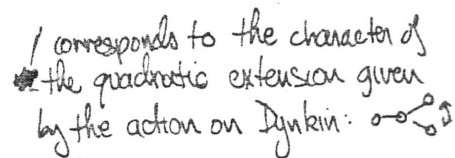 corresponds to the character of
the quadratic extension given
by the action on Dynkin: